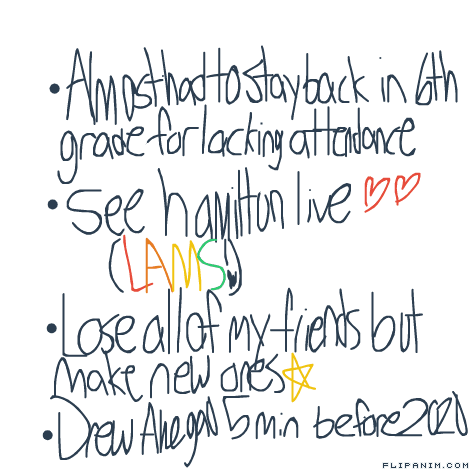 • Almost had to stay back in 6th
grade for lacking attendance
• See hamilton live ♡♡
(LAMS!)
• Lose all of my friends but
make new ones ☆
• Drew Ahegao 5 min before 2020
FLIPANIM.COM